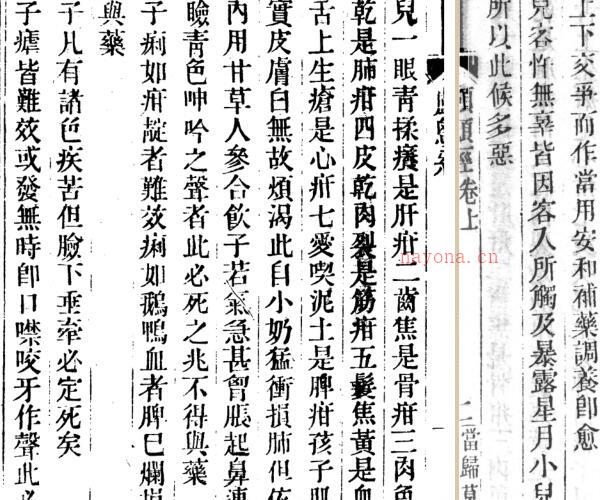 上下交爭而作當用安和補藥調養卽愈
兒客忤無辜皆因客入所觸及暴露星月小兒
所以此候多惡
顱顖經卷上
二當歸草
兒一眼靑揉癢是肝疳二齒焦是骨疳三肉色
乾是肺疳四皮乾肉裂是筋疳五髮焦黃是血
舌上生瘡是心疳七愛喫泥土是脾疳孩子肌
實皮膚白無故煩渴此自小奶猛衝損肺但依
內用甘草人參合飮子若氣急甚胷脹起鼻連
瞼靑色呻吟之聲者此必死之兆不得與藥
子痢如疳靛者難效痢如鵝鴨血者脾已爛損
與藥
子凡有諸色疾苦但臉下垂牽必定死矣
子瘧皆難效或發無時卽口噤咬牙作聲此必
nayona.cn